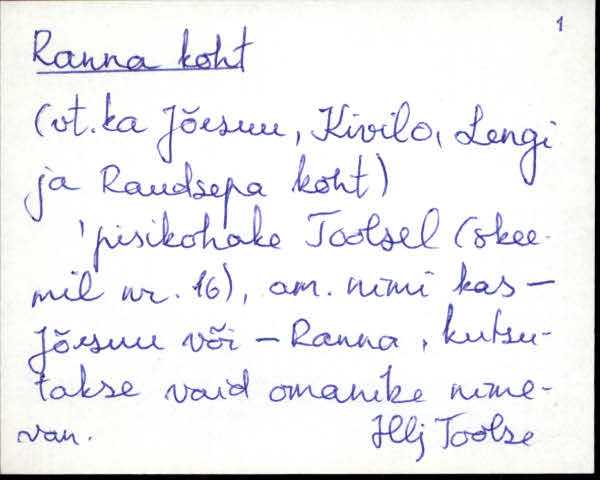 1
Ranna koht
(vt.ka Jõesuu, Kivilo, Lengi
ja Raudsepa koht)
'pisikohake Toolsel (skee-
mil nr. 16), am. nimi kas –
Jõesuu või – Ranna, kutsu-
takse vaid omanike nime-
van. Hlj Toolse